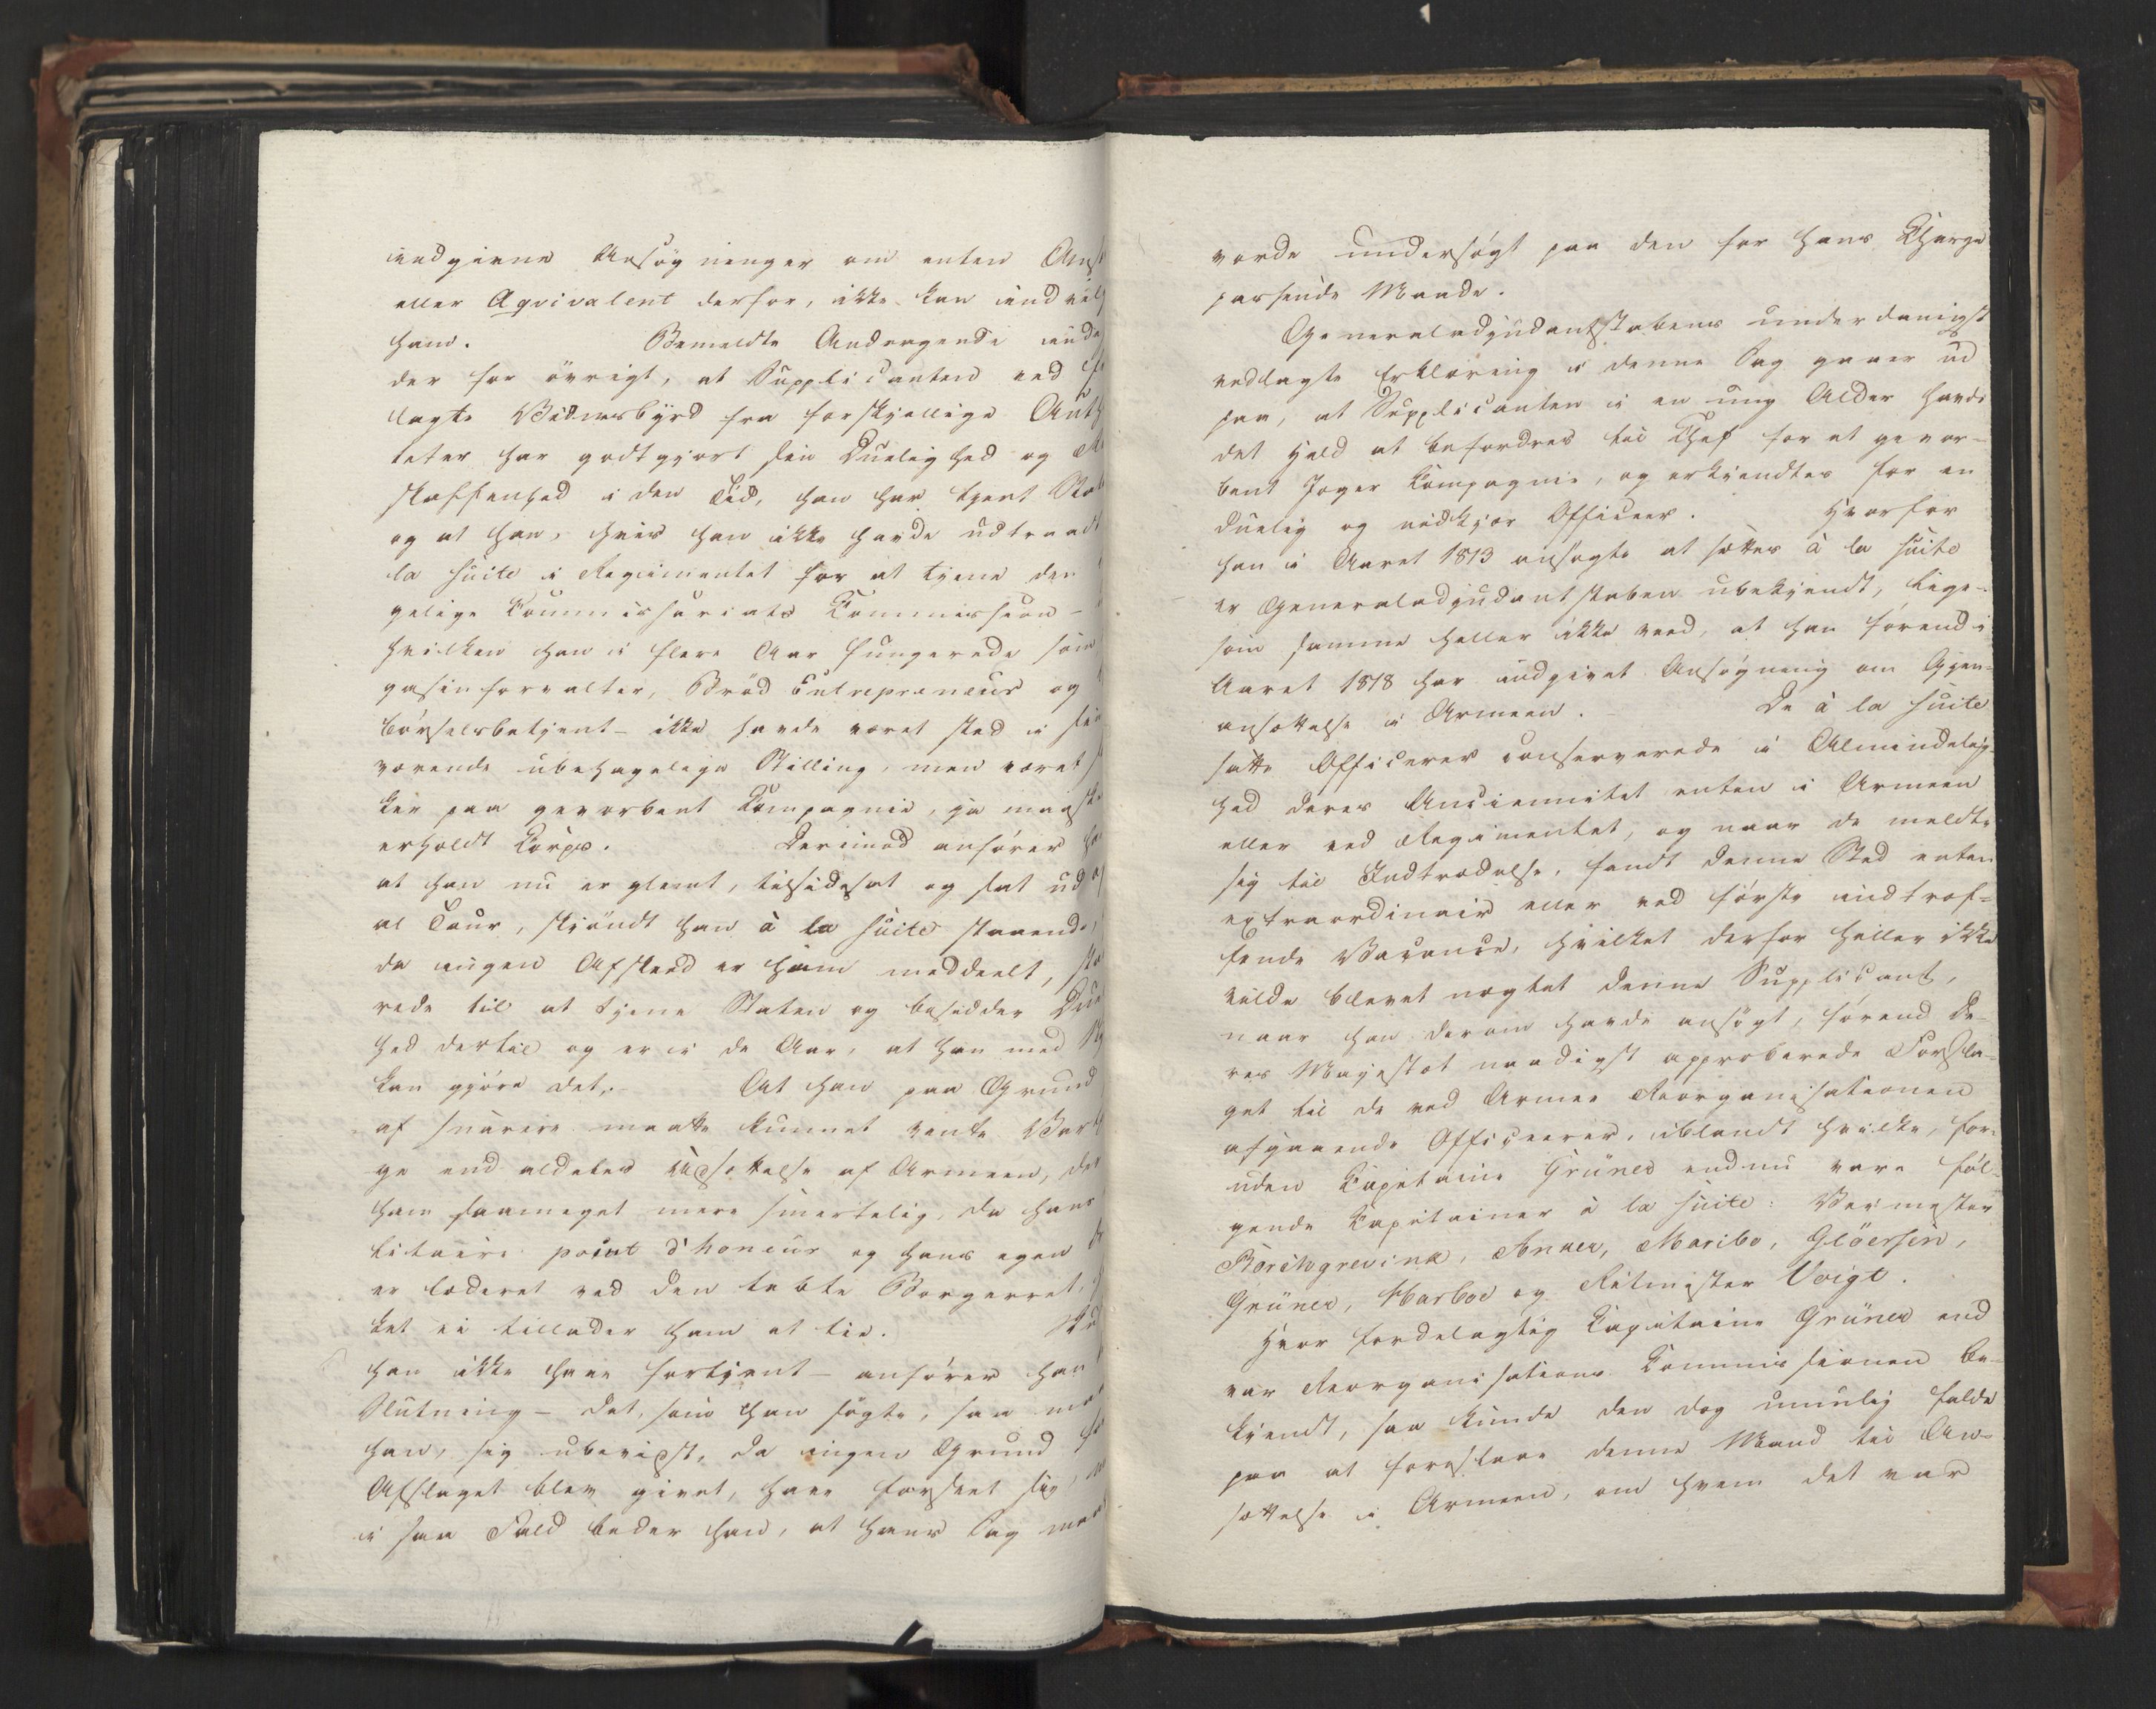 indgivne Ansøgninger om enten Ans
eller Æqvivalent derfor, ikke kan indvil
ham. Bemeldte Andragende inde
der for øvrigt, at Supplicanten ved
lagte Vidnesbyrd fra forskjellige Auth
teter har godtgjort sin Duelighed og
skaffenhed i den Tid, han har tjent Stat
og at han, hvis han ikke havde udtraadt
la suite i Regimentet for at tjene den
gelige Commissariats Commission –
hvilken han i flere Aar fungerede som
gasinforvalter, Brød Entrepreneur og
børselsbetjent – ikke havde været sted i sin
værende ubehagelige Stilling, men været
ker paa gevorbent Compagnie, ja maaske
erholdt Corps. Derimod anfører ha
at han nu er glemt, tilsidesat og sat ud af
al Tour, skjøndt han à la suite staaende,
da ingen Afskeed er ham meddeelt,
rede til at tjene Staten og besidder Due
hed dertil og er i de Aar, at han med
kan gjøre det. At han paa Grund
af snarere maatte kunnet vente
ge end aldeles Udsættelse af Armeen, der
ham saameget mere smertelig, da hans
litaire point d'honeur og hans egen
er læderet ved den tabte Borgerret,
ket ei tillader ham at tie.
han ikke have fortjent – anfører han
Slutning – det, som han søgte, saa maa
han, sig ubevidst, da ingen Grund
Afslaget blev givet, have forseet sig,
i saa Fald beder han, at hans Sag maa
vorde undersøgt paa den for hans Charge
passende Maade.
Generaladjudantstabens underdanigst
vedlagte Erklæring i denne Sag gaaer ud
paa, at Supplicanten i en ung Alder havde
det Held at befordres til Chef for et gevor-
bent Jæger Compagnie, og erkjendtes for en
duelig og nidkjær Officeer. Hvorfor
han i Aaret 1813 ansøgte at sættes à la suite
er Generaladjudantstaben ubekjendt, lige-
som samme heller ikke veed, at han førend i
Aaret 1818 har indgivet Ansøgning om Gjen-
ansættelse i Armeen. De à la suite
satte Officerer conserverede i Almindelig-
hed deres Anciennitet enten i Armeen
eller ved Regimentet, og naar de meldte
sig til Indtrædelse, fandt denne Sted enten
extraordinair eller ved første indtræf-
fende Vacance, hvilket derfor heller ikke
vilde blevet nægtet denne Supplicant,
naar han derom havde ansøgt, førend De-
res Majestæt naadigst approberede Forsla-
get til de ved Armee Reorganisationen
afgaaende Officeerer, iblandt hvilke, for-
uden Capitaine Grüner endnu vare føl-
gende Capitainer à la suite: Veimester
Borchgrevink, Anker, Maribo, Glöersen,
Grüner, Harboe og Ritmester Voigt.
Hvor fordelagtig Capitaine Grüner end
var Reorganisations Commissionen be-
kjendt, saa kunde den dog umulig falde
paa at foreslaae denne Mand til An-
sættelse i Armeen, om hvem det var